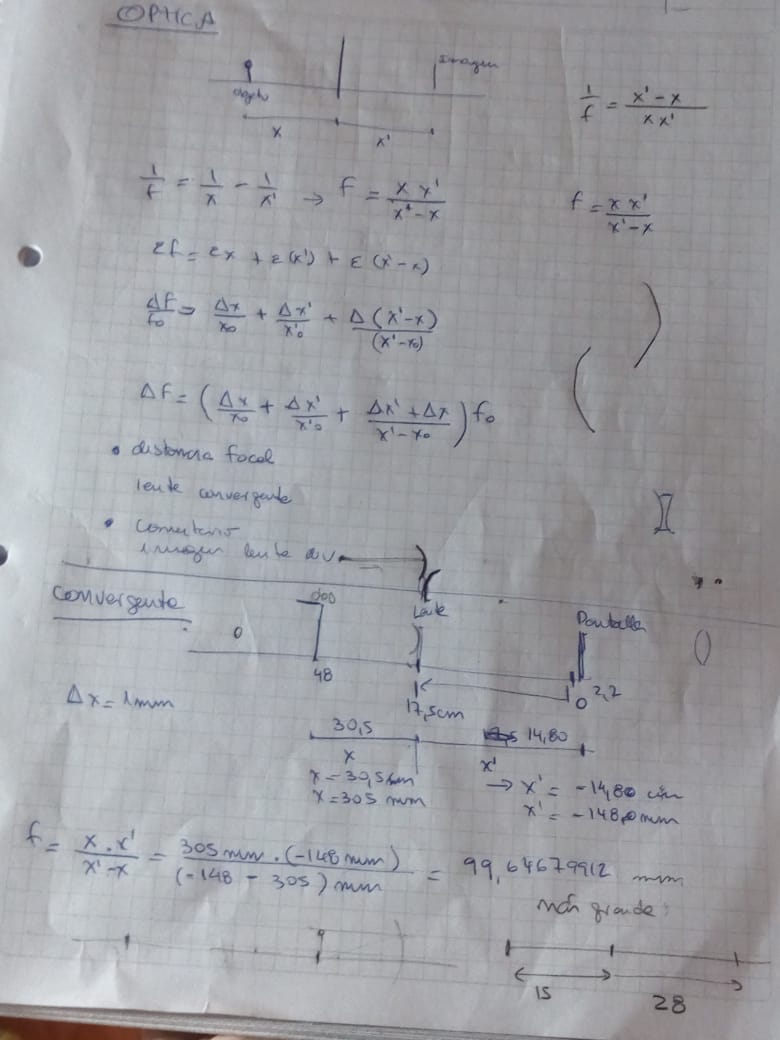 OPTICA
Imagen
objeto
x
x'
1/f = (x' - x)/(x x')
1/f = 1/x - 1/x' → f = (x x')/(x' - x)
f = (x x')/(x' - x)
εf = εx + ε(x') + ε(x' - x)
Δf/f₀ = Δx/x₀ + Δx'/x'₀ + Δ(x'-x)/(x'-x₀)
Δf = (Δx/x₀ + Δx'/x'₀ + (Δx' + Δx)/(x' - x₀)) f₀
• distancia focal
lente convergente
•
imagen lente div
Convergente
O
Lente
Pantalla
48
17,5cm
0
2,2
Δx = 1mm
30,5
14,80
x
x'
x = 30,5 cm
x = 305 mm
→ x' = -14,80 cm
x' = -148,0 mm
f = (x . x')/(x' - x) = (305 mm . (-148 mm))/((-148 - 305) mm) = 99,64679912 mm
más grande:
15
28